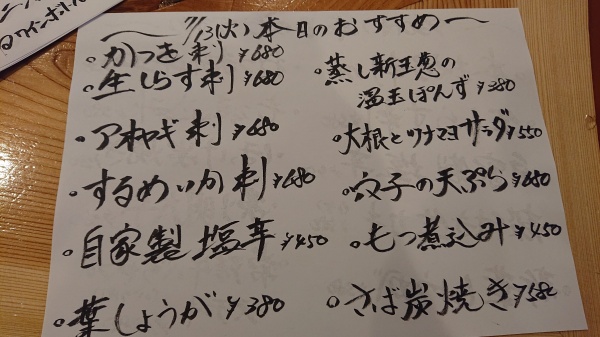 〜7/13(火)本日のおすすめ〜
・かつお刺 ¥680
・生しらす刺 ¥680
・アオヤギ刺 ¥680
・するめいか刺 ¥680
・自家製塩辛 ¥450
・葉しょうが ¥380
・蒸し新玉葱の
温玉ぽんず ¥380
・大根とツナマヨサラダ ¥550
・穴子の天ぷら ¥680
・もつ煮込み ¥450
・さば炭焼き ¥580